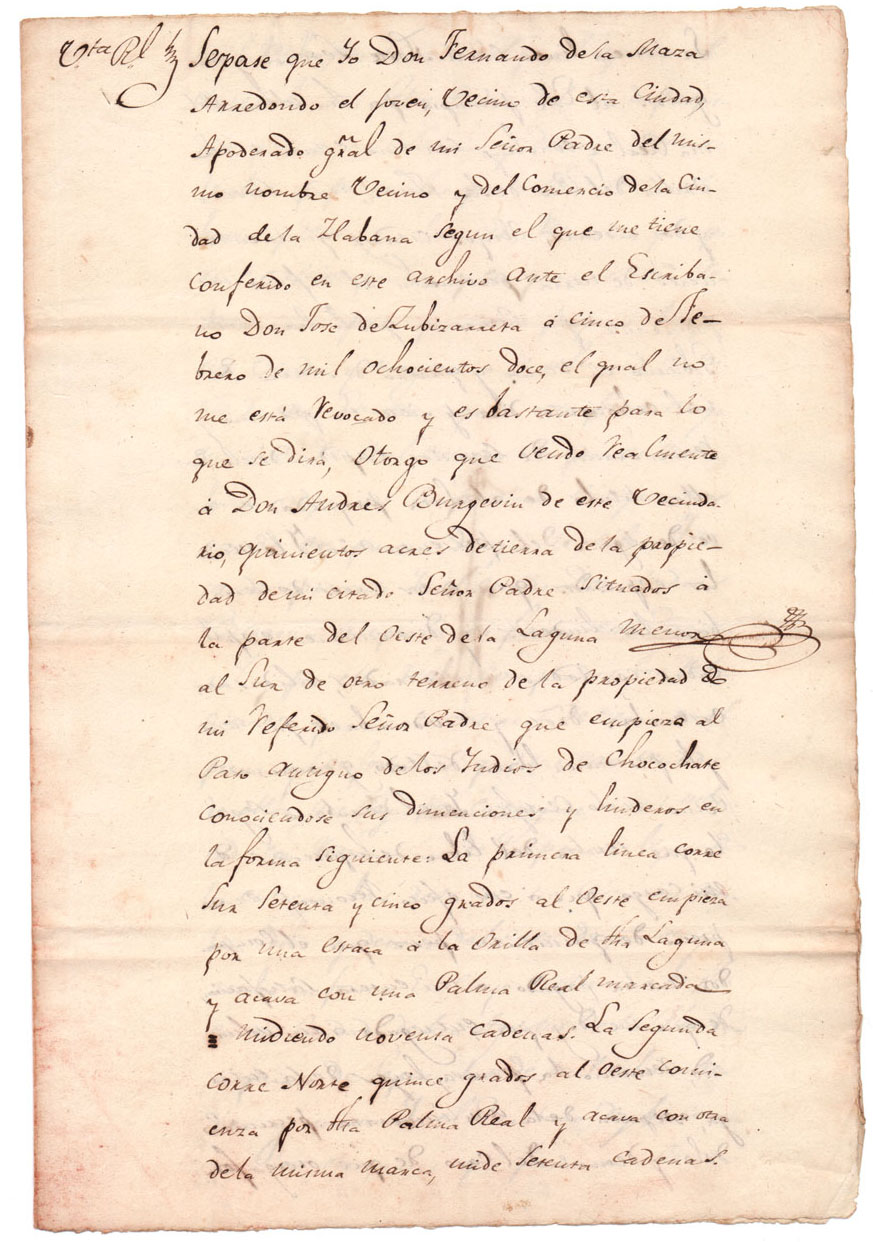 Vta Rl Sepase que Yo Don Fernando de la Maza
Arredondo el joven, Vecino de esta Ciudad,
Apoderado gral de mi Señor Padre del mis-
mo nombre Vecino y del Comercio de la Ciu-
dad de la Habana segun el que me tiene
conferido en este archivo ante el Escriba-
no Don Jose de Zubizarreta á cinco de Fe-
brero de mil ochocientos doce, el qual no
me está revocado y es bastante para lo
que se dirá, Otorgo que vendo realmente
á Don Andres Burgevin de este Vecinda-
rio, quinientos acres de tierra de la propie-
dad de mi citado Señor Padre situados á
la parte del Oeste de la Laguna Menor
al Sur de otro terreno de la propiedad de
mi referido Señor Padre que empieza al
Paso antiguo de los Yndios de Chocochate
conociendose sus dimenciones y linderos en
la forma siguiente: La primera linea corre
Sur Setenta y cinco grados al Oeste empieza
por una estaca á la Orilla de dha Laguna
y acava con una Palma Real marcada
midiendo noventa cadenas. La Segunda
corre Norte quince grados al Oeste comi-
enza por dha Palma Real y acava con otra
de la misma marca, mide Setenta cadenas.